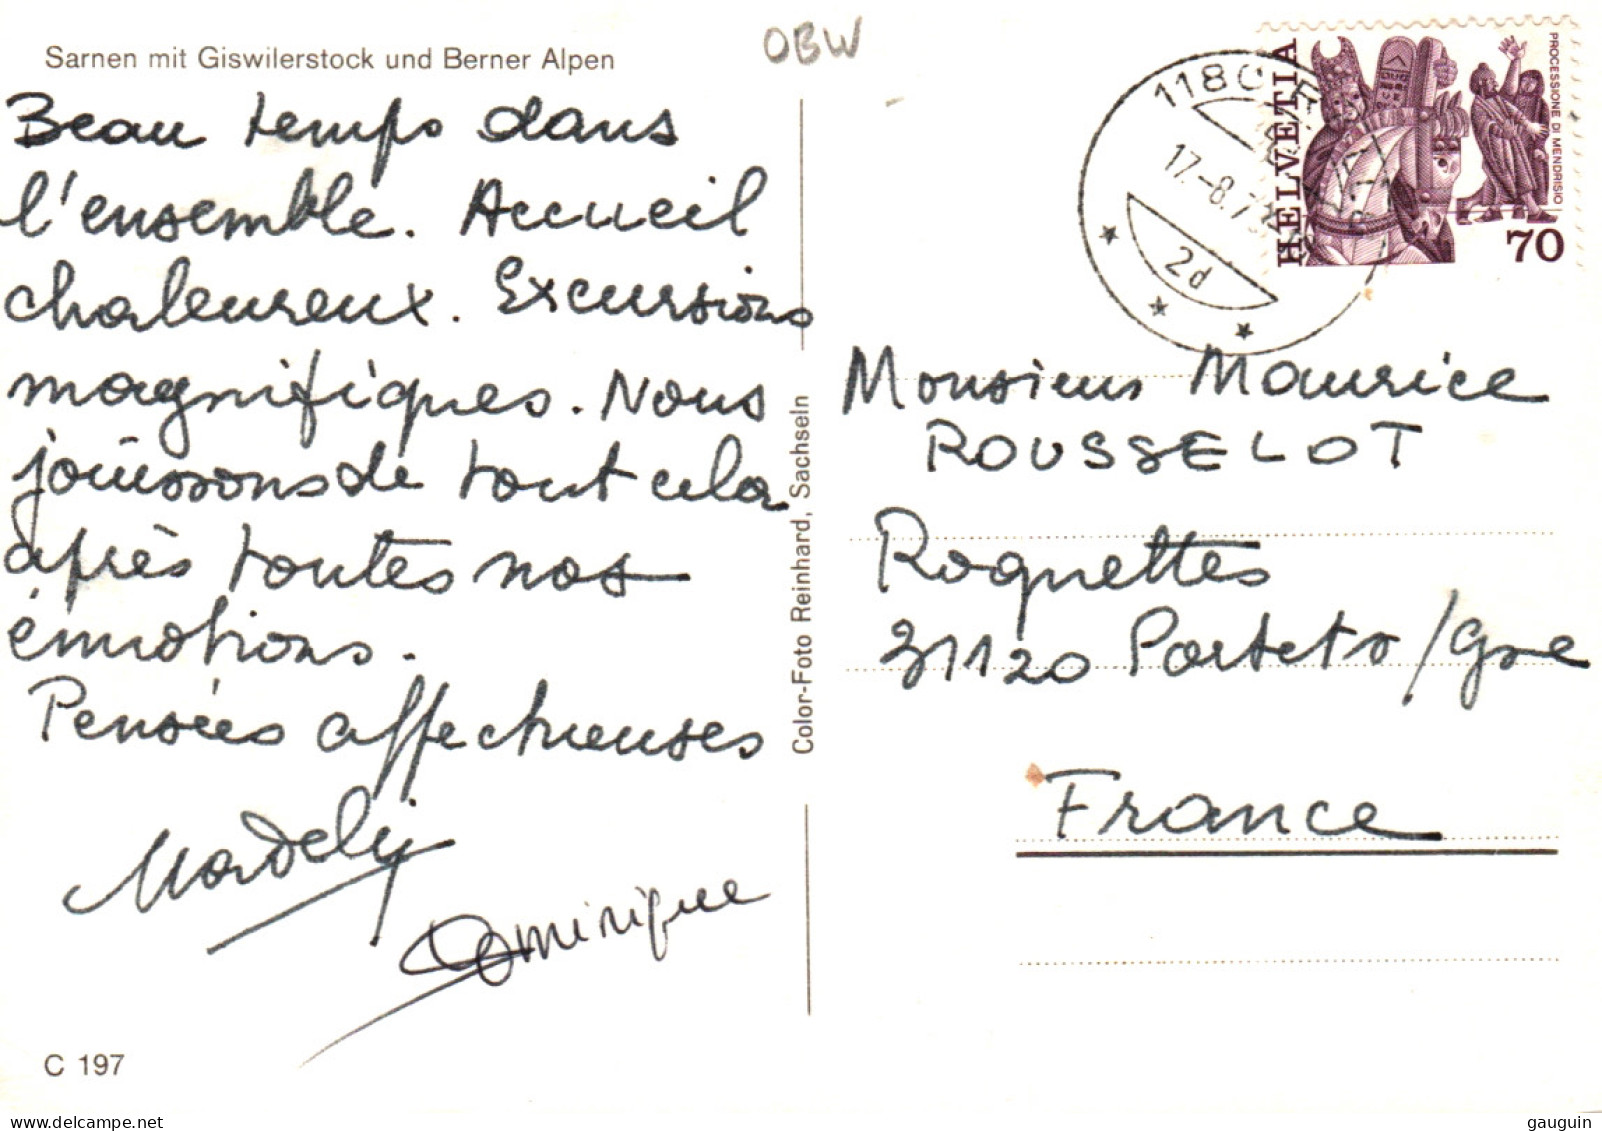 Sarnen mit Giswilerstock und Berner Alpen
OBW
Beau temps dans
l'ensemble. Accueil
chaleureux. Excursions
magnifiques. Nous
jouissons de tout cela
après toutes nos
émotions.
Pensées affectueuses
Madely
Dominique
C 197
Color-Foto Reinhard, Sachseln
1180
17.-8.7
2d
HELVETIA
PROCESSIONE DI MENDRISIO
70
Monsieur Maurice
ROUSSELOT
Roquettes
31120 Portets/Gne
France
gauguin